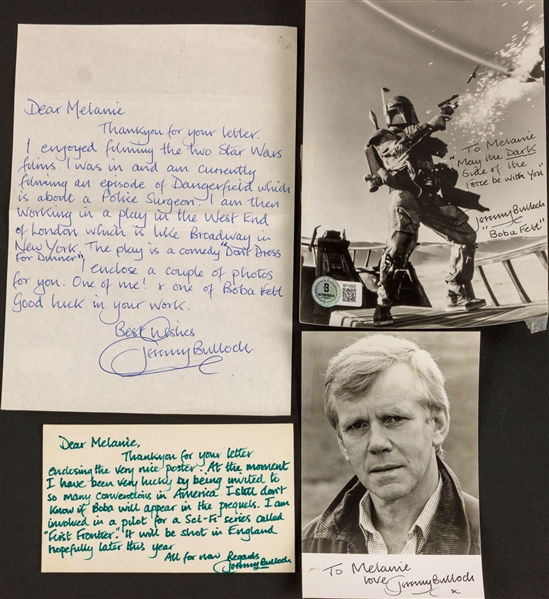 Dear Melanie
Thankyou for your letter.
I enjoyed filming the two Star Wars
films I was in and am currently
filming an episode of Dangerfield which
is about a Police Surgeon. I am then
working in a play in the West End
of London which is like Broadway in
New York. The play is a comedy "Don't Dress
For Dinner"
I enclose a couple of photos
for you. One of me! & one of Boba Fett
Good luck in your work.
Best Wishes
Jeremy Bulloch
To Melanie
"May the Dark
Side of the
Force be with You"
Jeremy Bulloch
"Boba Fett"
Dear Melanie,
Thankyou for your letter
enclosing the very nice poster. At the moment
I have been very lucky by being invited to
so many conventions in America. I still don't
know if Boba will appear in the prequels. I am
involved in a pilot for a Sci-Fi series called
"First Frontier." It will be shot in England
hopefully later this year
All for now Regards
Jeremy Bulloch
To Melanie
love Jeremy Bulloch
x